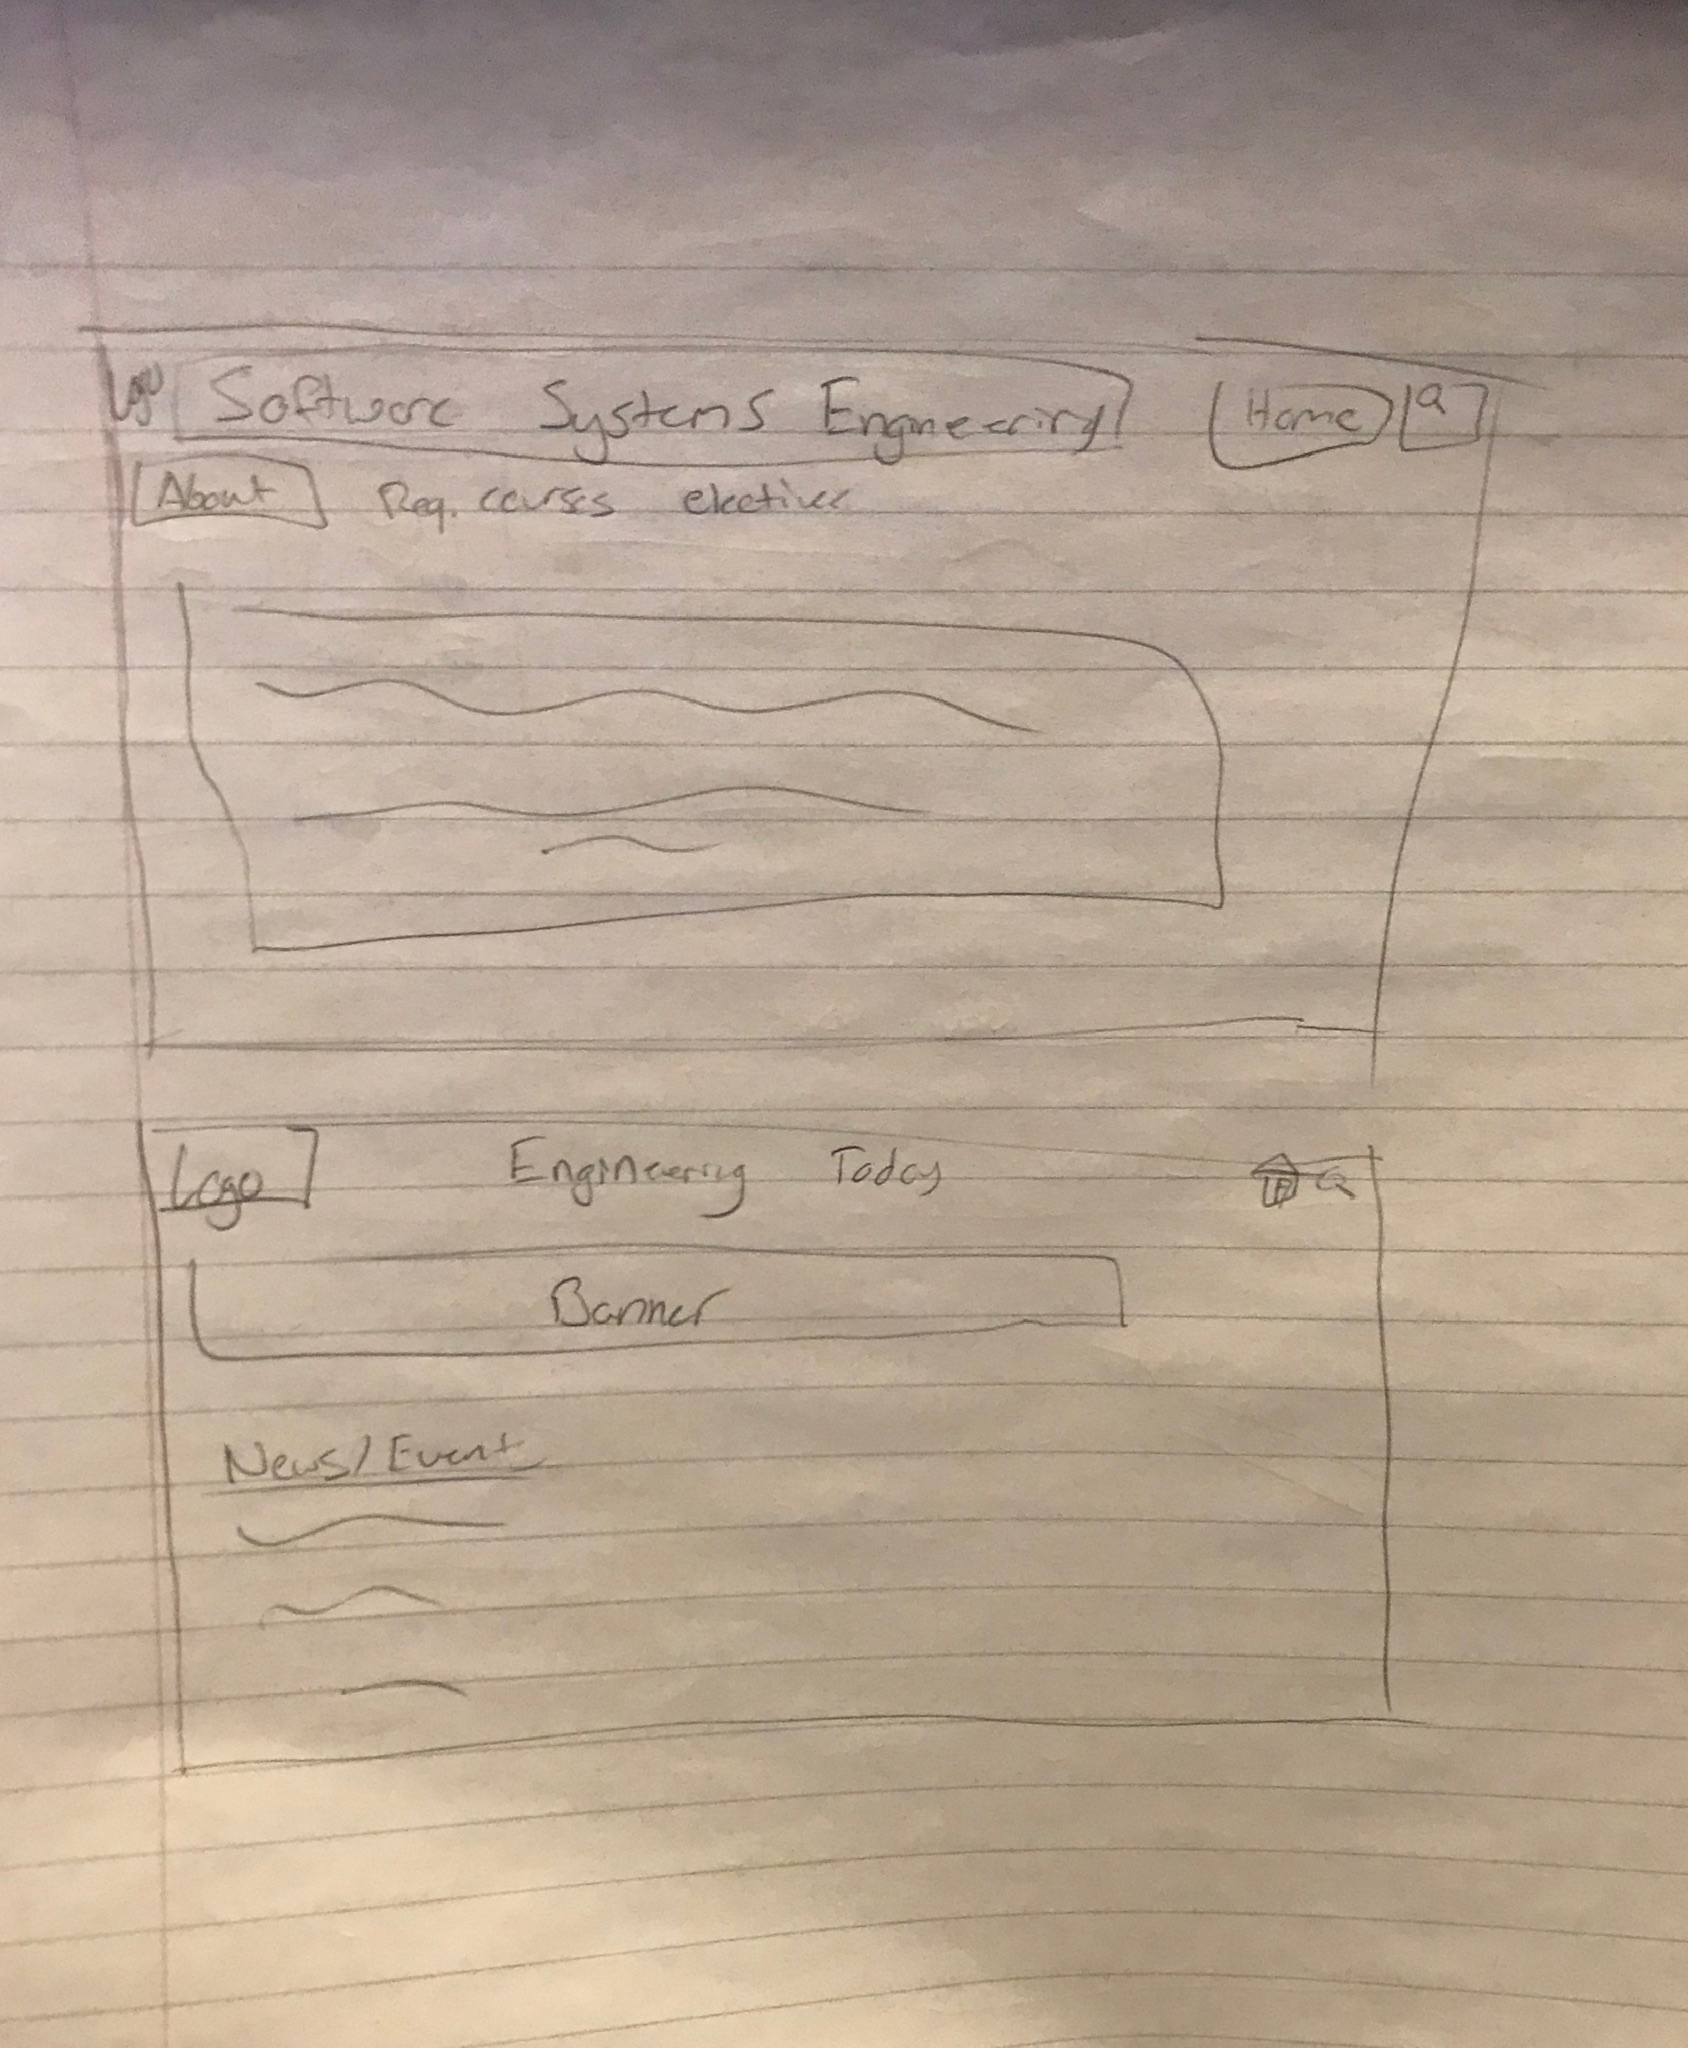 Logo Software Systems Engineering Home Q
About Req. courses electives
Logo Engineering Today Q
Banner
News/Event